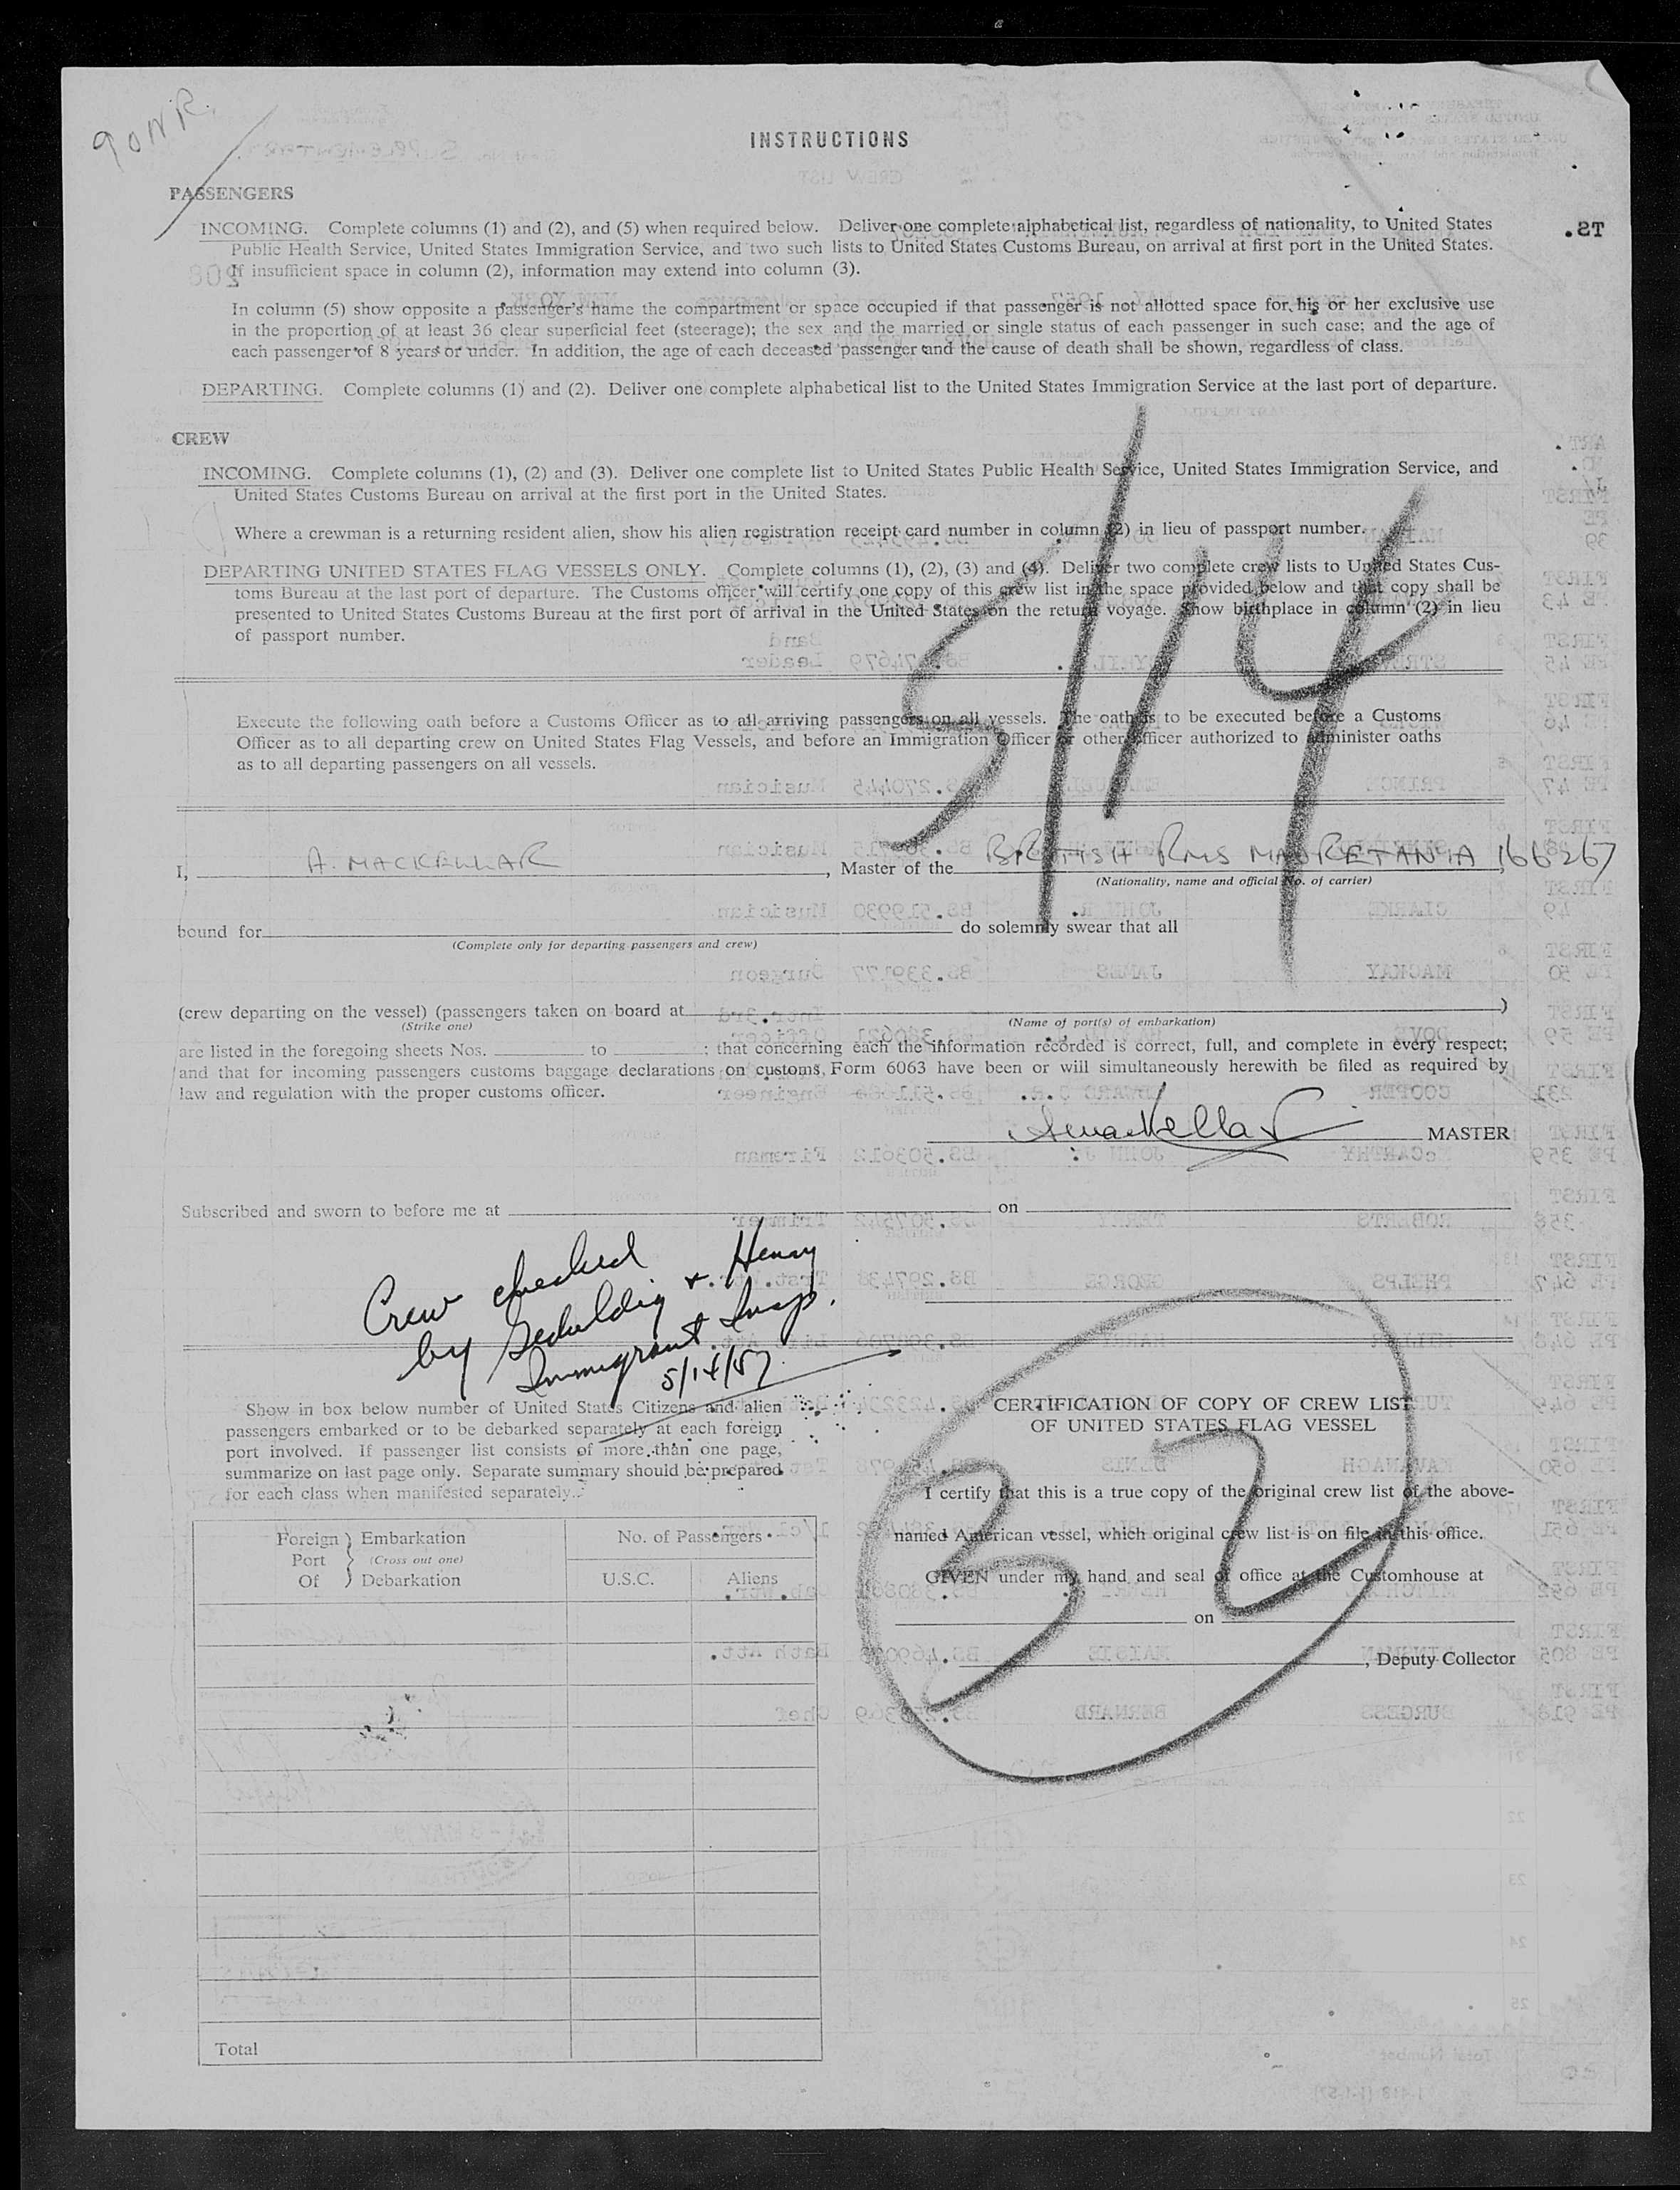 INSTRUCTIONS
PASSENGERS
INCOMING. Complete columns (1) and (2), and (5) when required below. Deliver one complete alphabetical list, regardless of nationality, to United States
Public Health Service, United States Immigration Service, and two such lists to United States Customs Bureau, on arrival at first port in the United States.
If insufficient space in column (2), information may extend into column (3).
In column (5) show opposite a passenger's name the compartment or space occupied if that passenger is not allotted space for his or her exclusive use
in the proportion of at least 36 clear superficial feet (steerage); the sex and the married or single status of each passenger in such case; and the age of
each passenger of 8 years or under. In addition, the age of each deceased passenger and the cause of death shall be shown, regardless of class.
DEPARTING. Complete columns (1) and (2). Deliver one complete alphabetical list to the United States Immigration Service at the last port of departure.
CREW
INCOMING. Complete columns (1), (2) and (3). Deliver one complete list to United States Public Health Service, United States Immigration Service, and
United States Customs Bureau on arrival at the first port in the United States.
Where a crewman is a returning resident alien, show his alien registration receipt card number in column (2) in lieu of passport number.
DEPARTING UNITED STATES FLAG VESSELS ONLY. Complete columns (1), (2), (3) and (4). Deliver two complete crew lists to United States Cus-
toms Bureau at the last port of departure. The Customs officer will certify one copy of this crew list in the space provided below and that copy shall be
presented to United States Customs Bureau at the first port of arrival in the United States on the return voyage. Show birthplace in column (2) in lieu
of passport number.
5/14
Execute the following oath before a Customs Officer as to all arriving passengers on all vessels. The oath is to be executed before a Customs
Officer as to all departing crew on United States Flag Vessels, and before an Immigration Officer or other officer authorized to administer oaths
as to all departing passengers on all vessels.
I, A. MACKELLAR, Master of the BRITISH RMS MAURETANIA 166267
(Nationality, name and official No. of carrier)
bound for do solemnly swear that all
(Complete only for departing passengers and crew)
(crew departing on the vessel) (passengers taken on board at )
(Strike one) (Name of port(s) of embarkation)
are listed in the foregoing sheets Nos. to ; that concerning each the information recorded is correct, full, and complete in every respect;
and that for incoming passengers customs baggage declarations on customs Form 6063 have been or will simultaneously herewith be filed as required by
law and regulation with the proper customs officer.
AMacKellar MASTER
Subscribed and sworn to before me at on
Crew checked
by Geduldig & Henry
Immigrant Insp.
5/14/57
Show in box below number of United States Citizens and alien
passengers embarked or to be debarked separately at each foreign
port involved. If passenger list consists of more than one page,
summarize on last page only. Separate summary should be prepared
for each class when manifested separately.
Foreign Port Of
Embarkation
(Cross out one)
Debarkation
No. of Passengers
U.S.C. Aliens
Total
CERTIFICATION OF COPY OF CREW LIST
OF UNITED STATES FLAG VESSEL
I certify that this is a true copy of the original crew list of the above-
named American vessel, which original crew list is on file in this office.
GIVEN under my hand and seal of office at the Customhouse at
on
, Deputy Collector